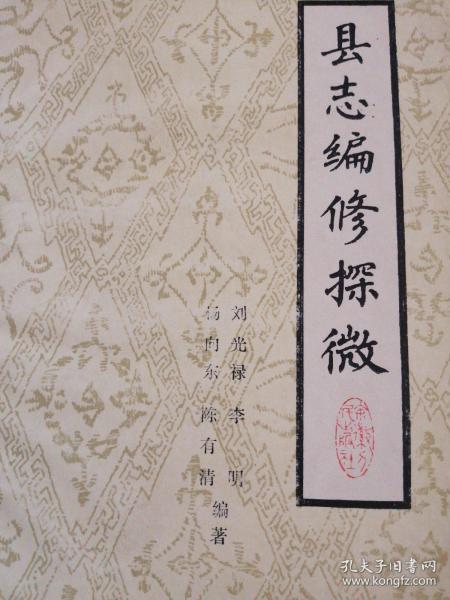 县志编修探微
刘光禄 李明
杨向东 陈有清 编著
孔夫子旧书网
www.kongfz.com